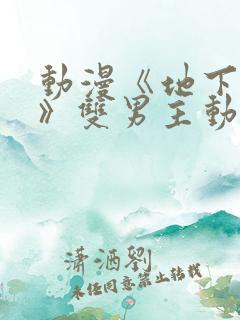 動漫《地下
》雙男主動
瀟洒劉
未经同意禁止转载